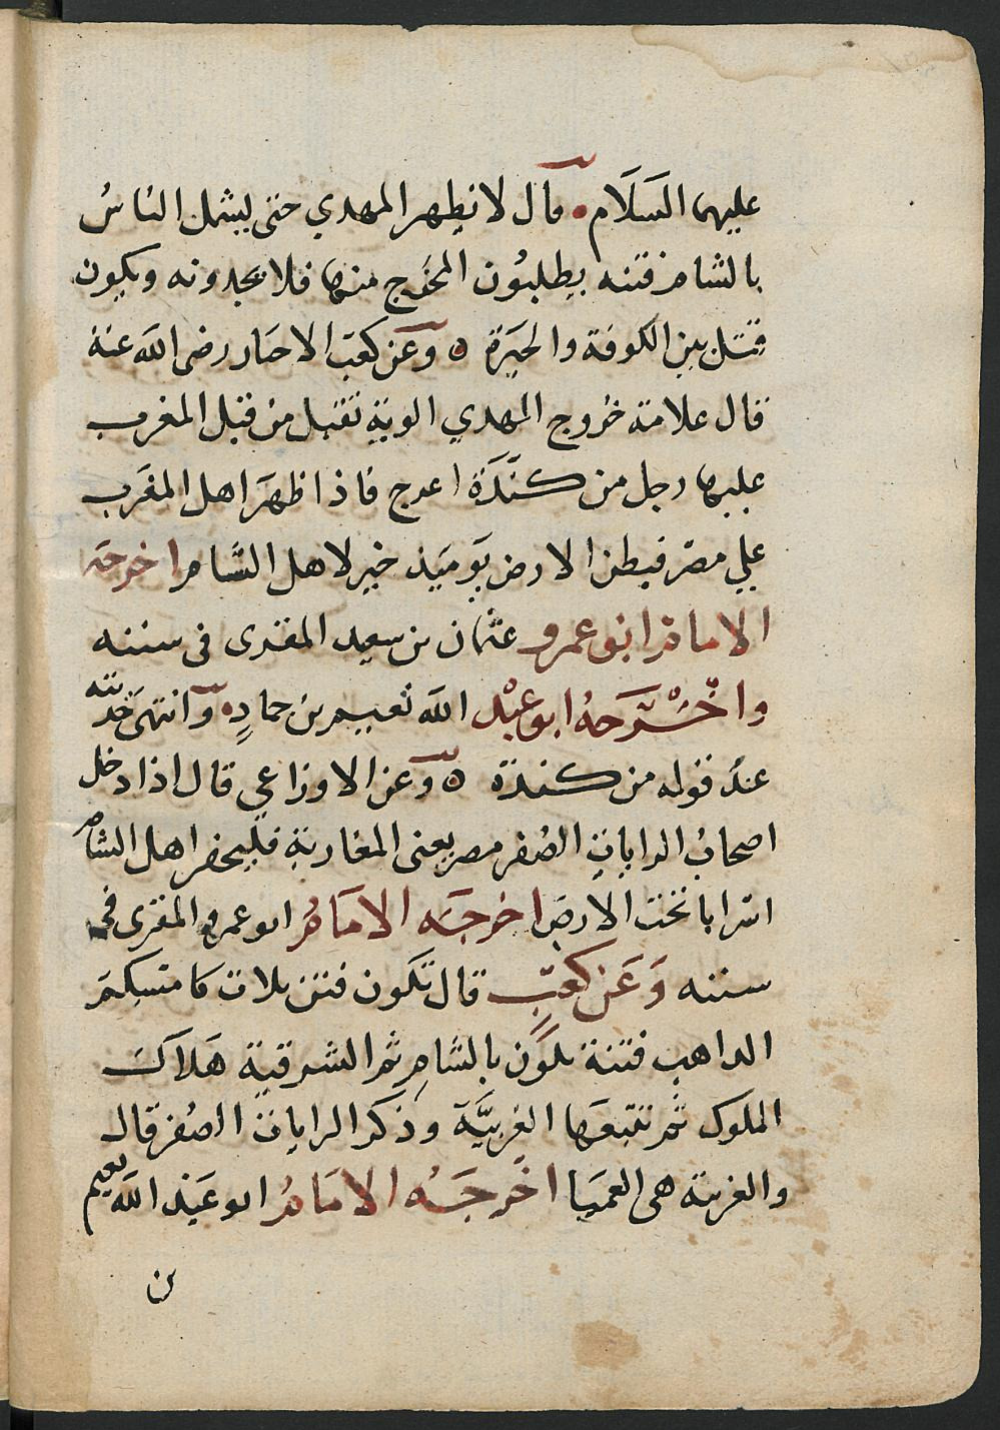 عليهما السلام قال لا يظهر المهدي حتى يشمل الناس
بالشام فتنه يطلبون المخرج منها فلا يجدونه ويكون
قتل بين الكوفة والحيرة وعن كعب الاحبار رضى الله عنه
قال علامة خروج المهدي الوية تقبل من قبل المغرب
عليها رجل من كندة اعرج فاذا ظهر اهل المغرب
علي مصر فبطن الارض يوميذ خير لاهل الشام اخرجه
الامام ابو عمرو عثمان بن سعيد المقرى فى سننه
واخرجه ابو عبد الله نعيم بن حماد وانتهى حديثه
عند قوله من كندة وعن الاوزاعي قال اذا دخل
اصحاب الرايات الصفر مصر يعنى المغاربة فليحفر اهل الشام
اسرابا تحت الارض اخرجه الامام ابو عمرو المقرى في
سننه وعن كعب قال تكون فتن ثلاث كامسكم
الذاهب فتنة تكون بالشام ثم الشرقية هلاك
الملوك ثم تتبعها الغربية وذكر الرايات الصفر قال
والغربية هى العميا اخرجه الامام ابو عبد الله نعيم
بن